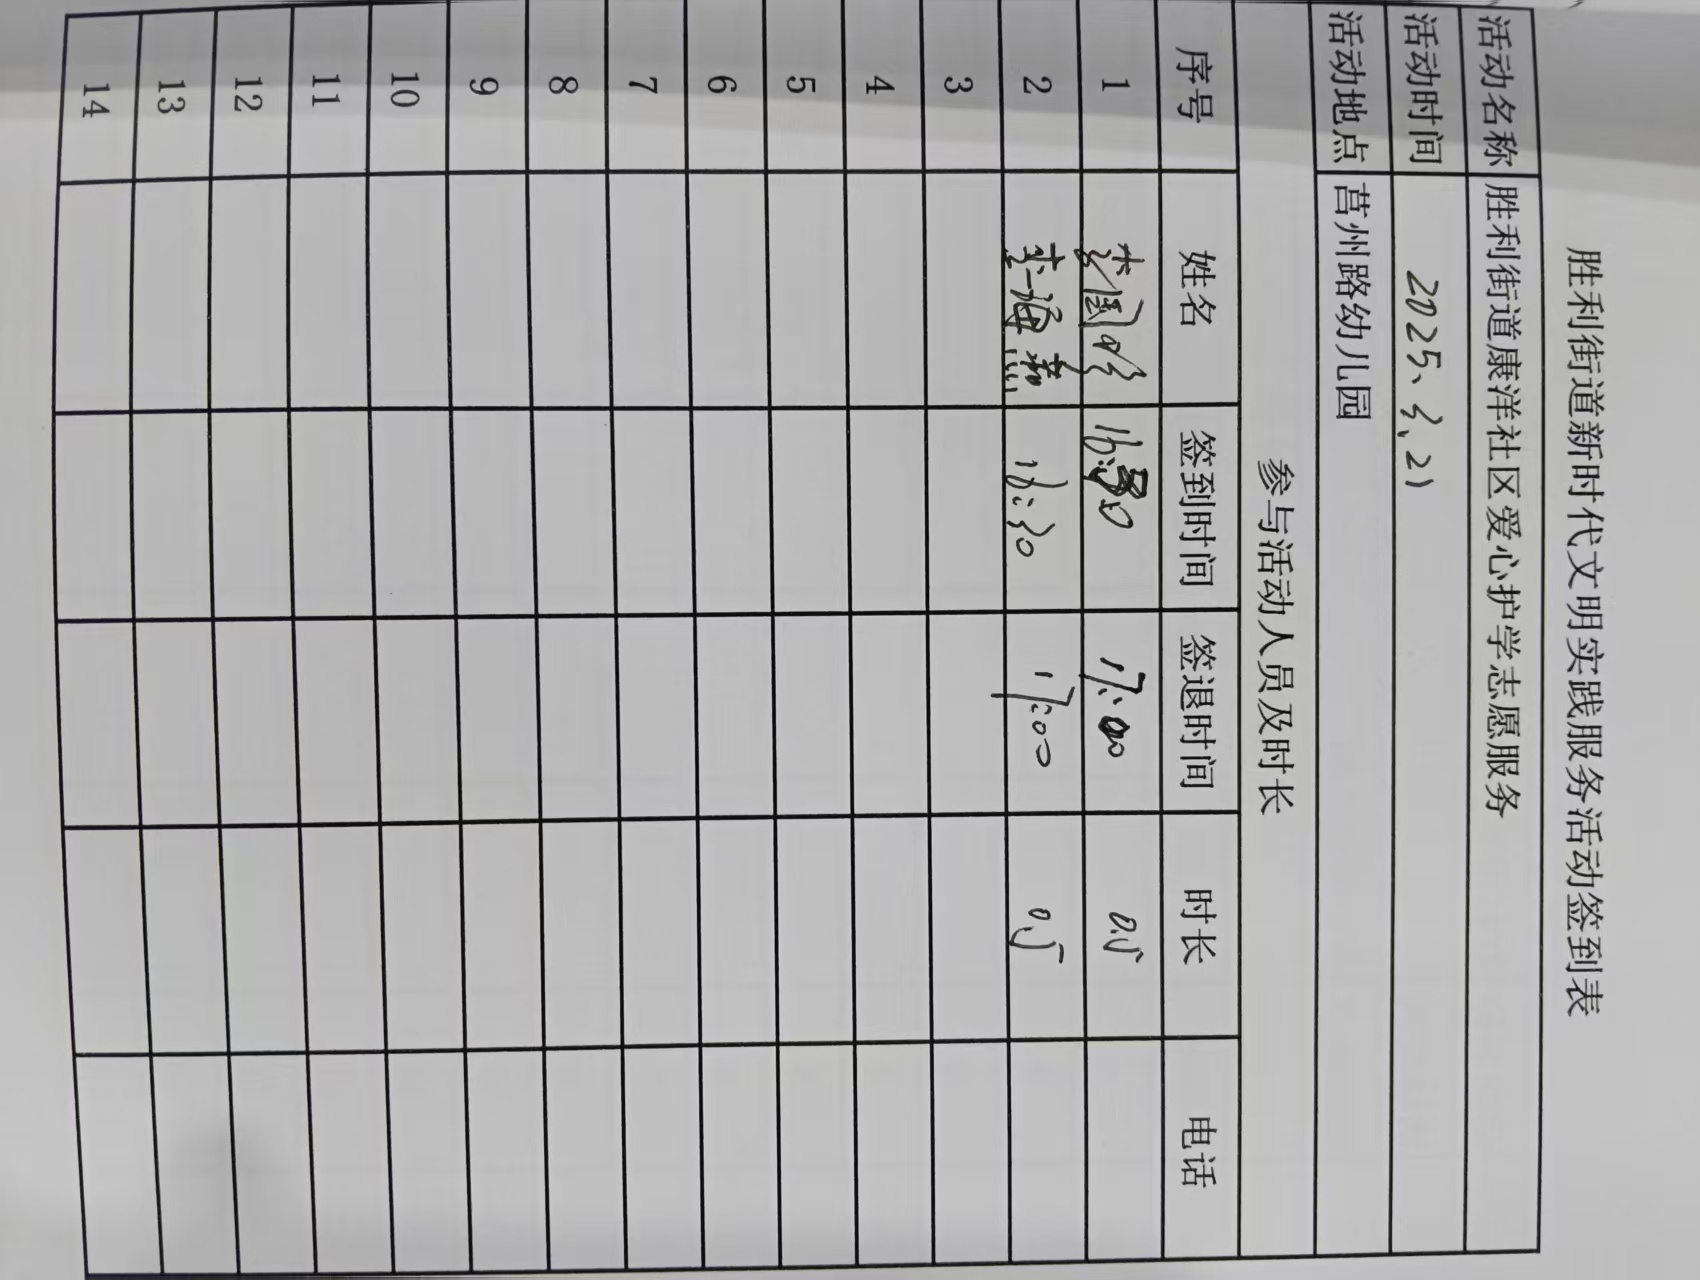 胜利街道新时代文明实践服务活动签到表
活动名称 胜利街道康洋社区爱心护学志愿服务
活动时间 2025、3、21
活动地点 莒州路幼儿园
参与活动人员及时长
序号 姓名 签到时间 签退时间 时长 电话
1 16:30 17:00 0.5
2 李海燕 16:30 17:00 0.5
3
4
5
6
7
8
9
10
11
12
13
14